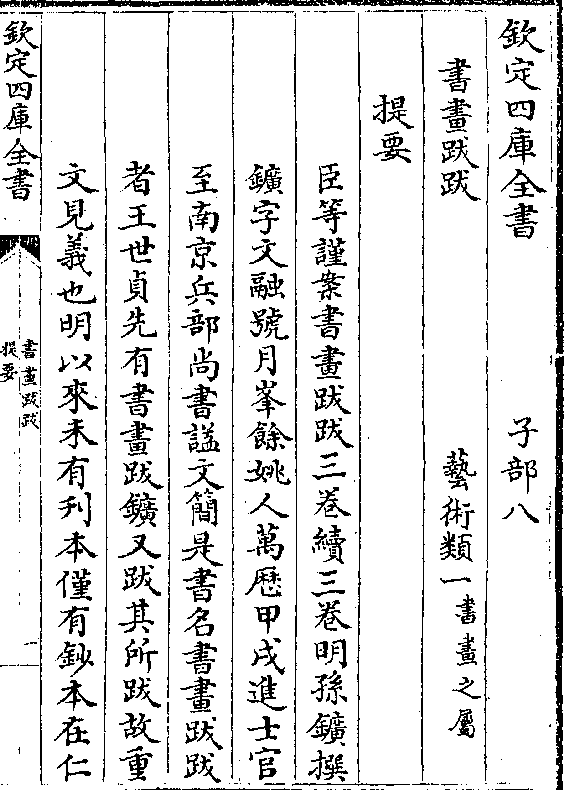 欽定四庫全書　子部八
書畫跋跋　藝術類一書畫之屬
提要
臣等謹案書畫跋跋三卷續三卷明孫鑛撰
鑛字文融號月峯餘姚人萬歷甲戌進士官
至南京兵部尚書諡文簡是書名書畫跋跋
者王世貞先有書畫跋鑛又跋其所跋故重
文見義也明以來未有刋本僅有鈔本在仁
欽定四庫全書
書畫跋跋
提要
一